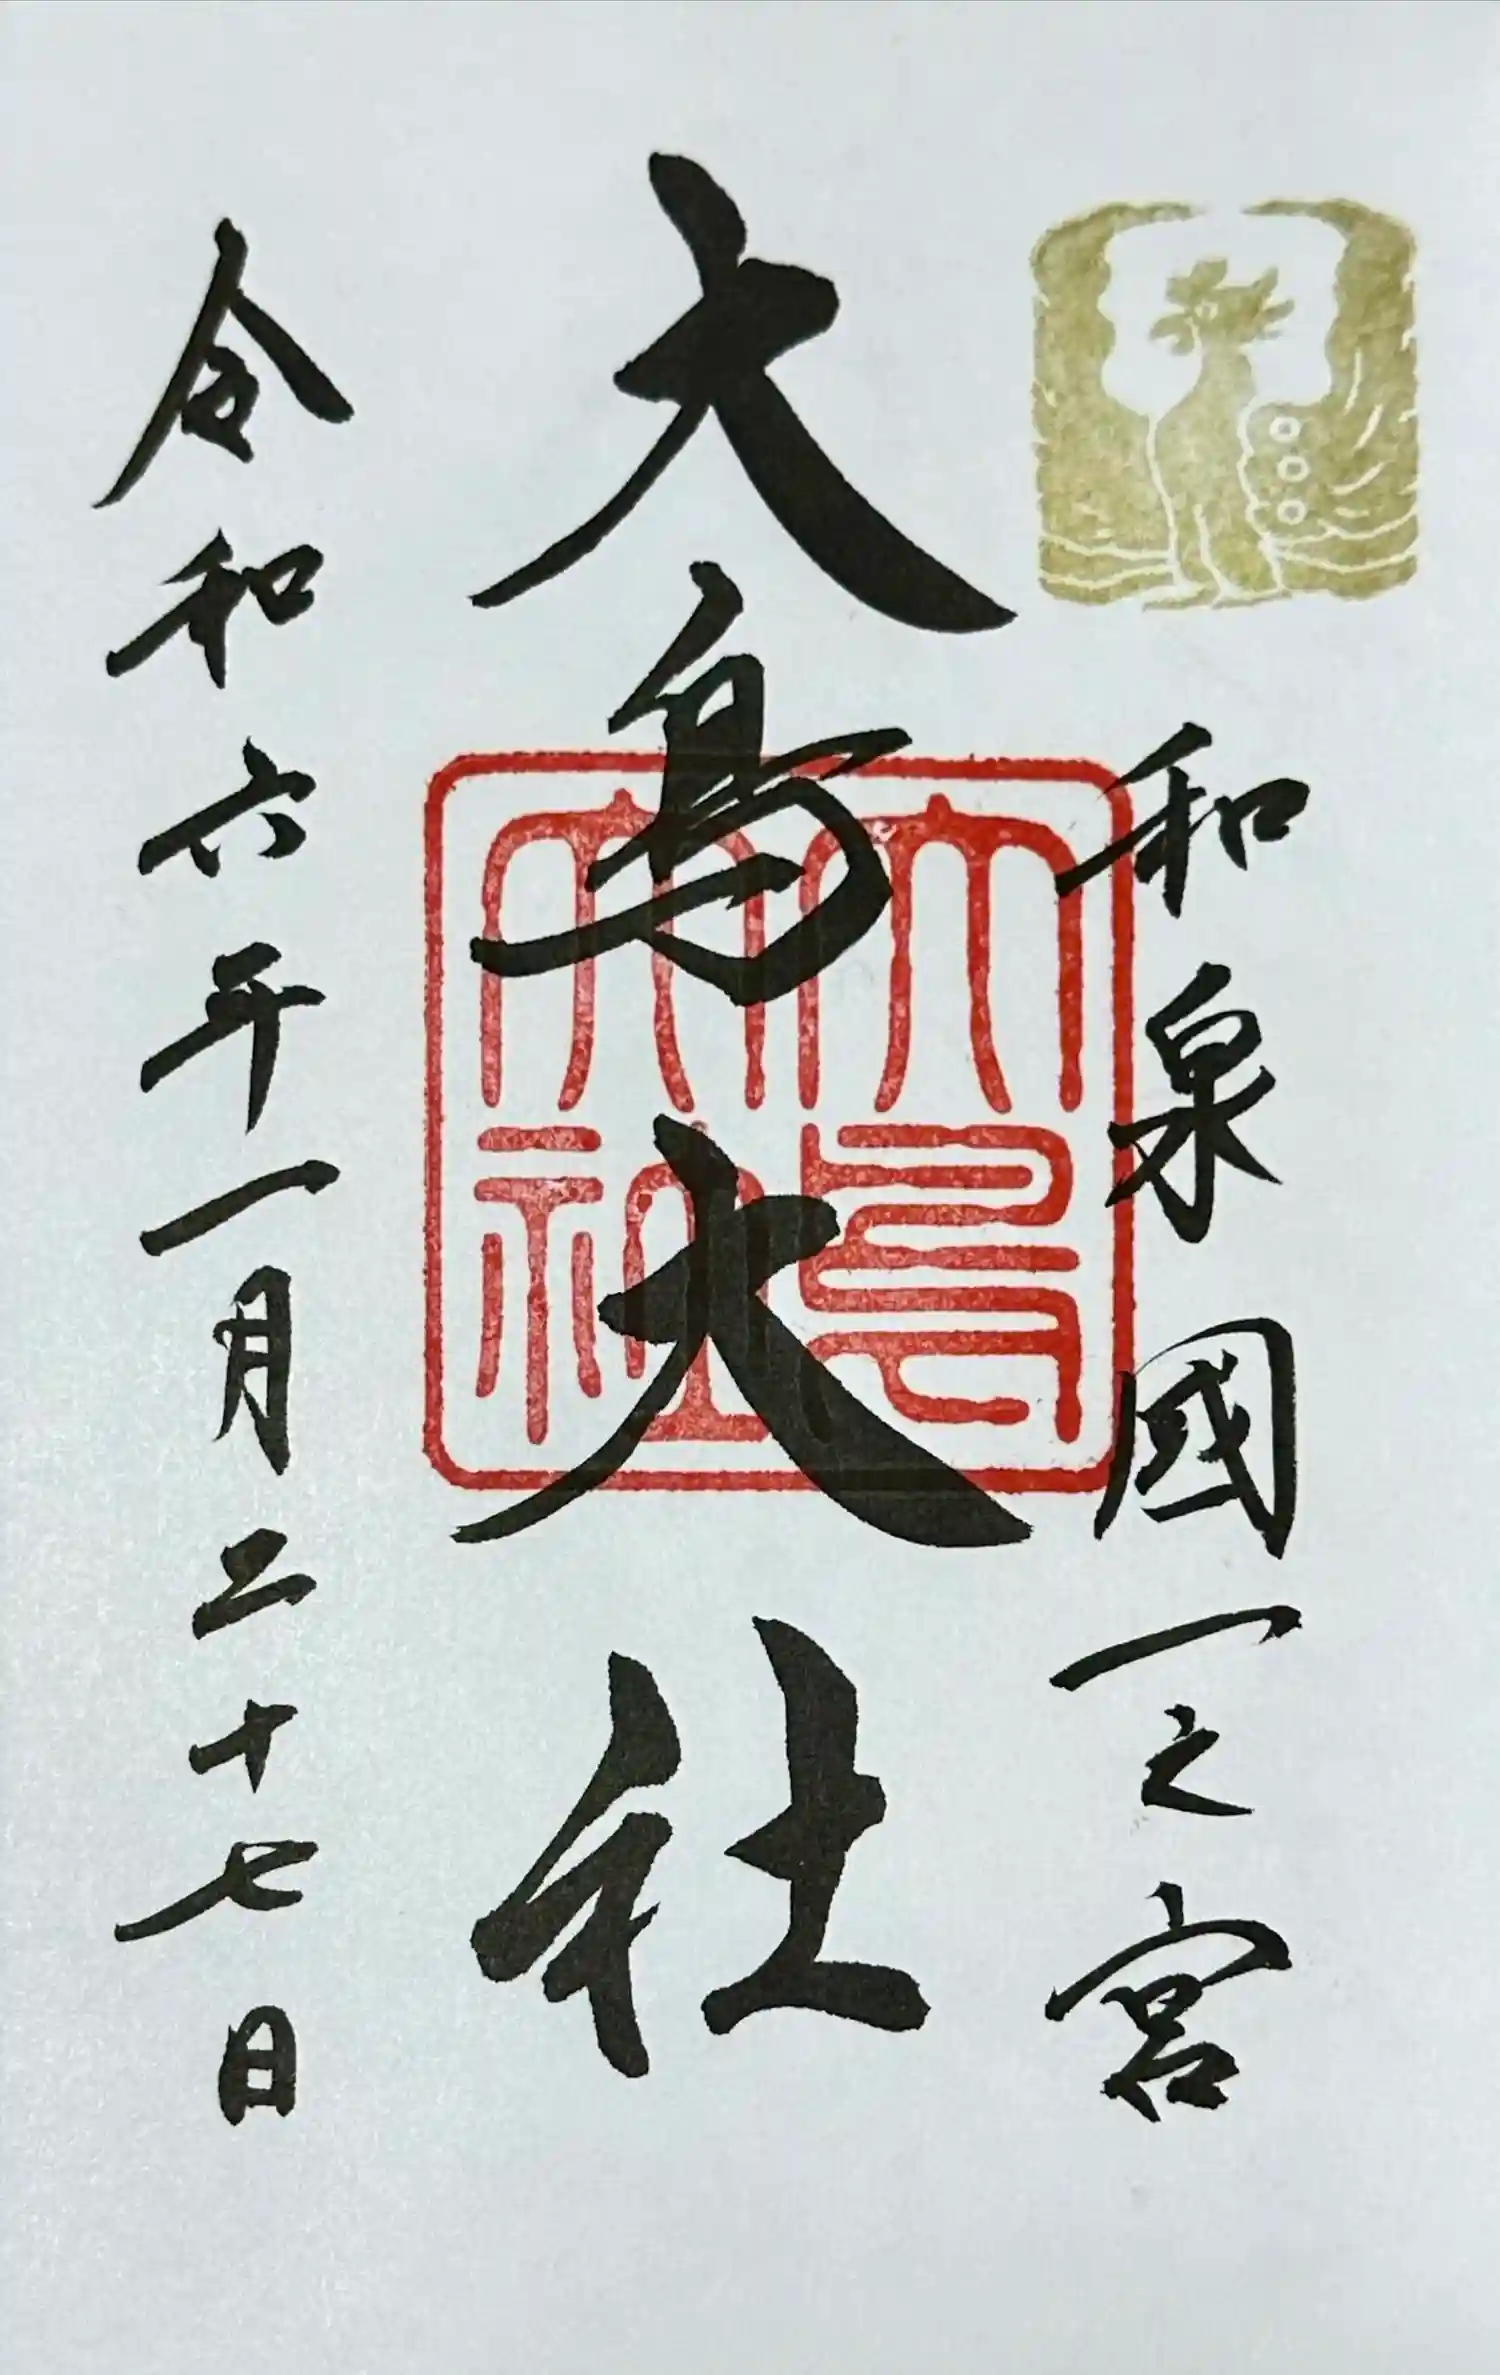 和泉國一之宮
大鳥大社
令和六年一月二十七日
大鳥
大社